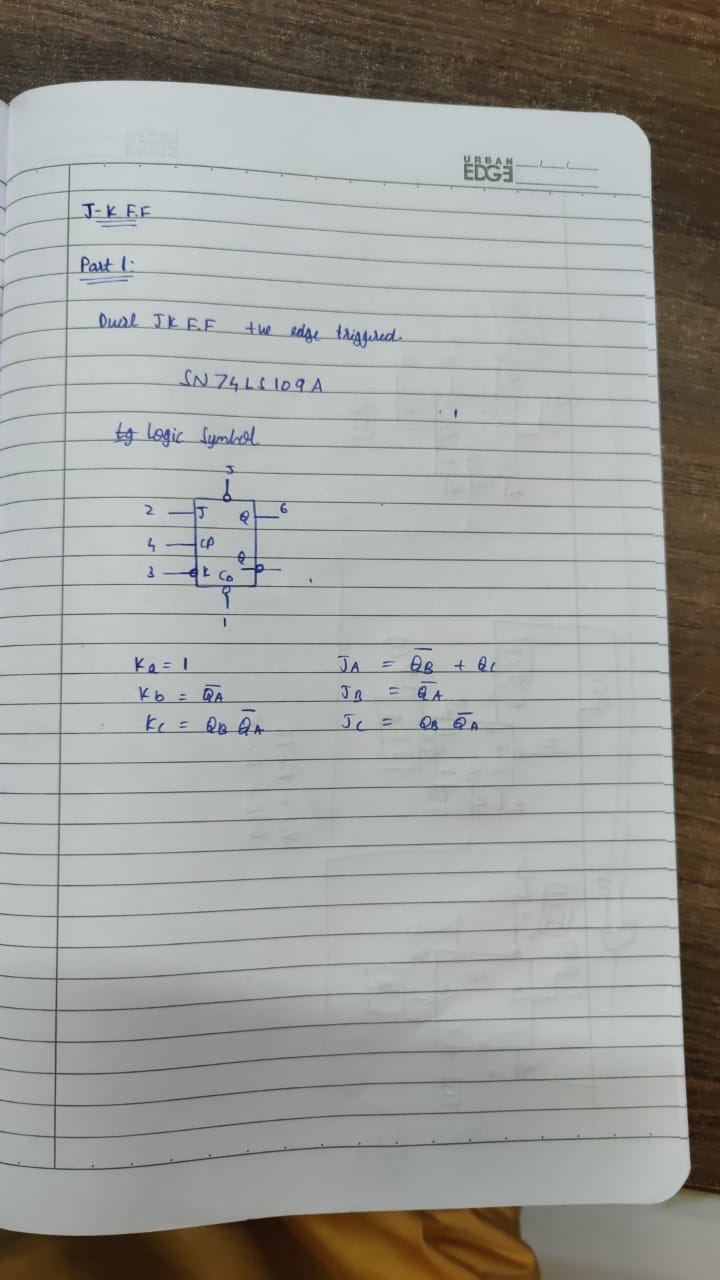 URBAN
EDGE
J-K F.F
Part 1:
Dual JK F.F +ve edge triggired.
SN74LS109A
Logic Symbol
5
2 J Q 6
4 CP
Q
3 K CD
1
Ka = 1 JA = Q̅B̅ + QC
Kb = Q̅A JB = Q̅A
KC = QB Q̅A JC = QB Q̅A